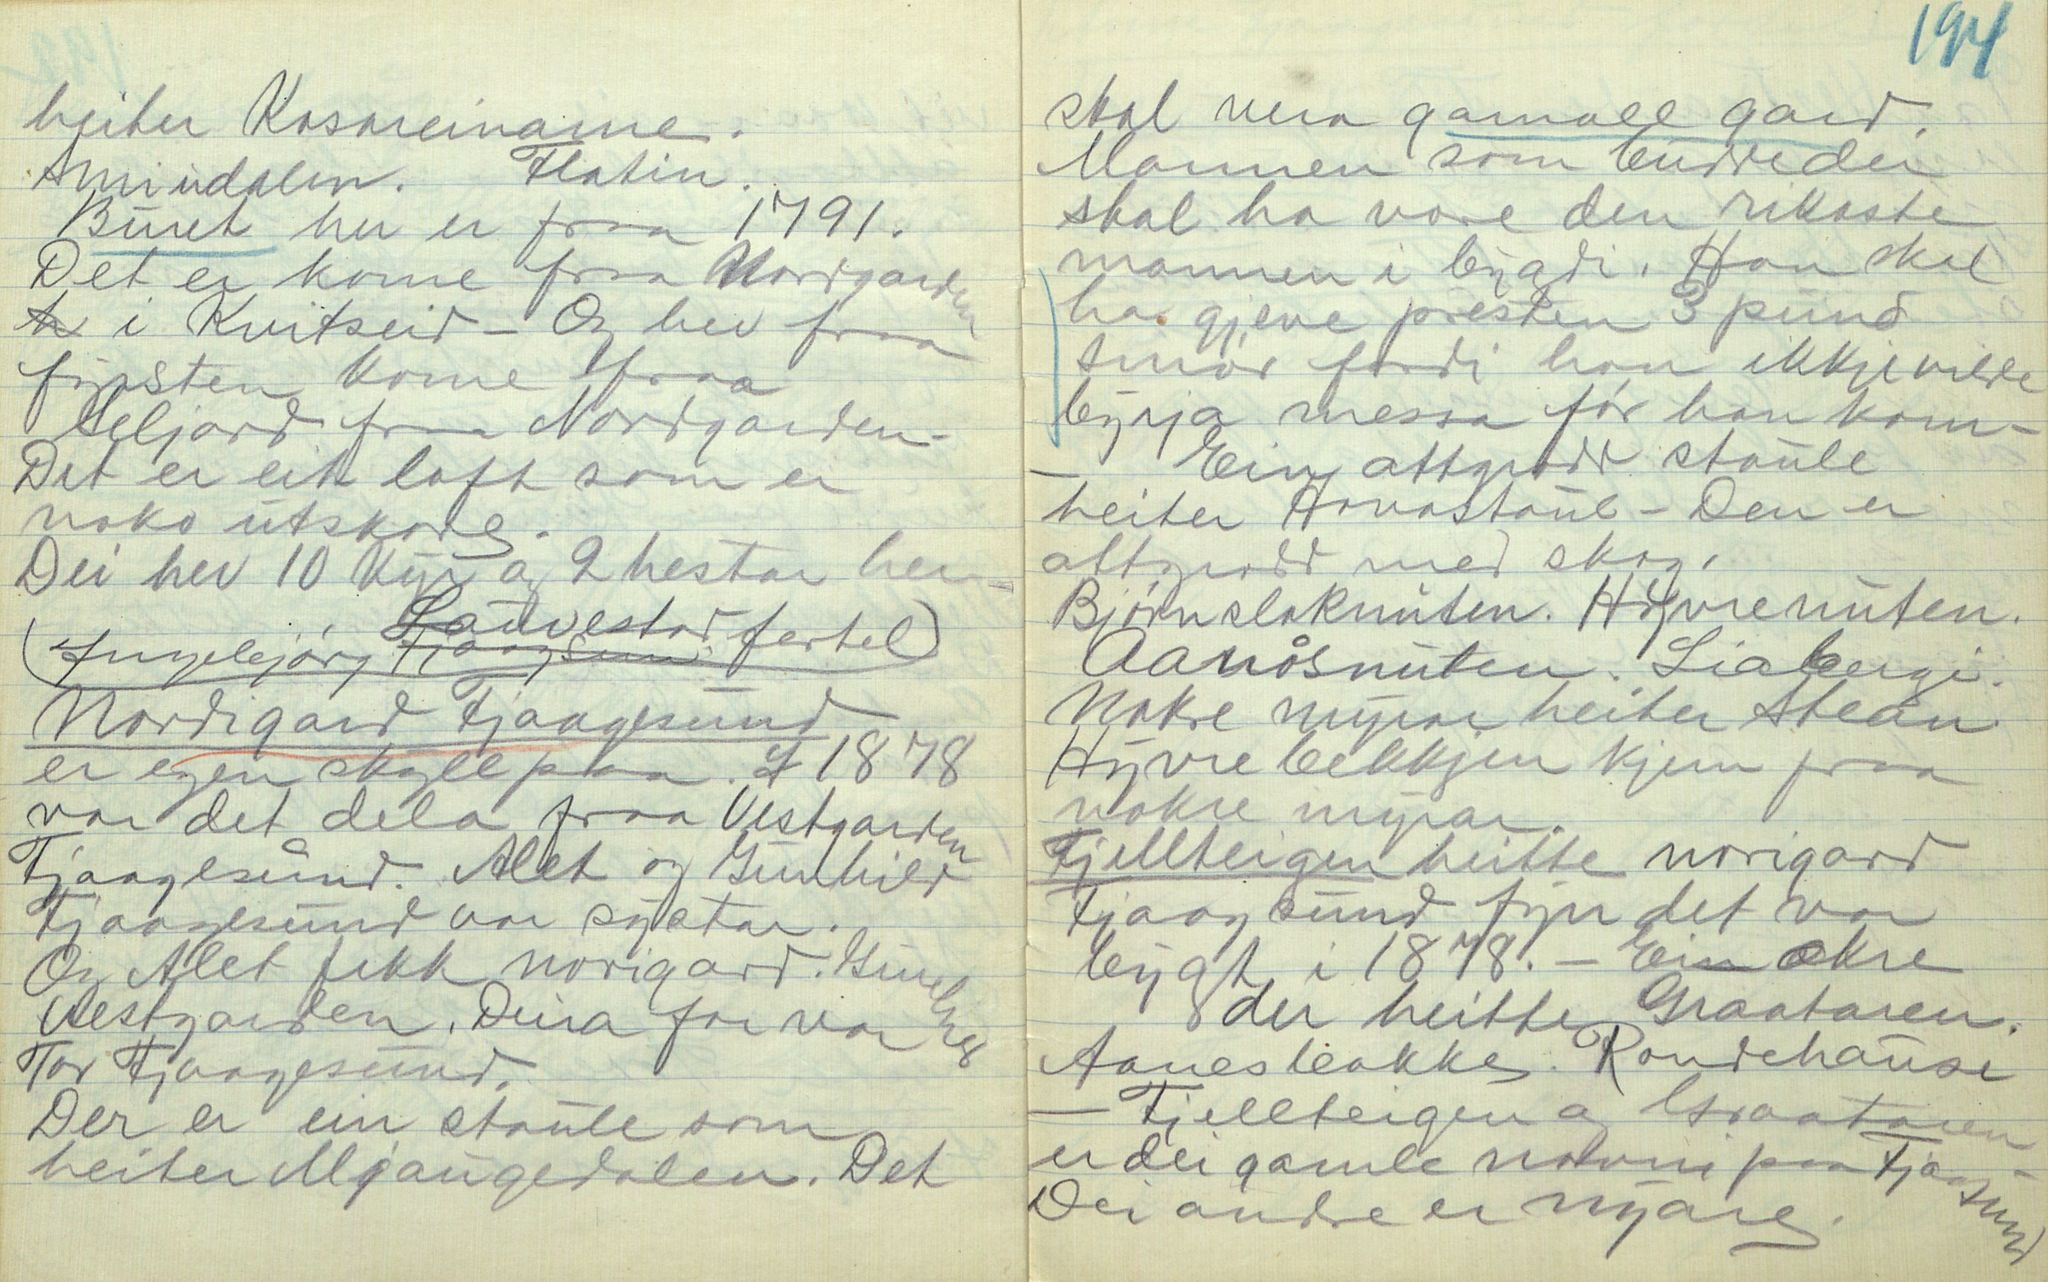 heiter Kosoreiname.
Smiudalen. Flatin.
Buret her er fraa 1791.
Det er kome fraa Nordgarden
i Kvitseid – Og hev fraa
fyrsten kome fraa
Seljord fraa Nordgarden –
Det er eit loft som er
noko utskore.
Dei hev 10 kyr og 2 hestar her –
(Ingebjørg Tjaagsund Lauvestad fortel)
Nordigard Tjaagesund
er egen skyll paa. I 1878
var det dela fraa Vestgarden
Tjaagesund. Alet og Gunhild
Tjaagesund var systar.
Og Alet fekk norigard. Gunhild
Vestgarden. Deira far var
Tor Tjaagesund.
Der er ein staule som
heiter Mjaugedalen. Det
194
skal vera gamall gard.
Mannen som budde der
skal ha vore den rikaste
mannen i bygdi. Han skal
ha gjeve presten 3 pund
smør fordi han ikkje vilde
byrja messa før han kom –
– Ein attgrodd staule
heiter Hovastaul – Den er
attgrodd med skog.
Bjørnslaknuten. Høgvrenuten.
Aanåsnuten. Liabergi.
Nokre myrar heiter Stean
Hyvrebekkjen kjem fraa
nokre myrar.
Fjellteigen heitte norigard
Tjaagsund fyrr det var
bygt i 1878. – Ein okre
der heitte Graataren.
Aanesbakke. Rondehause
– Fjellteigen og Graataren
er dei gamle novni paa Tjaagsund –
Dei andre er nyare.